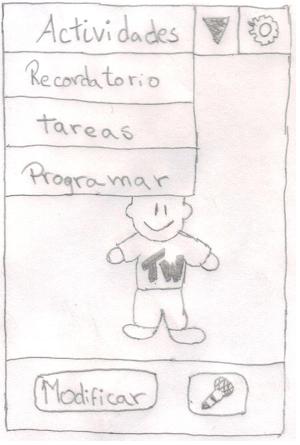 Actividades
Recordatorio
tareas
Programar
TW
Modificar